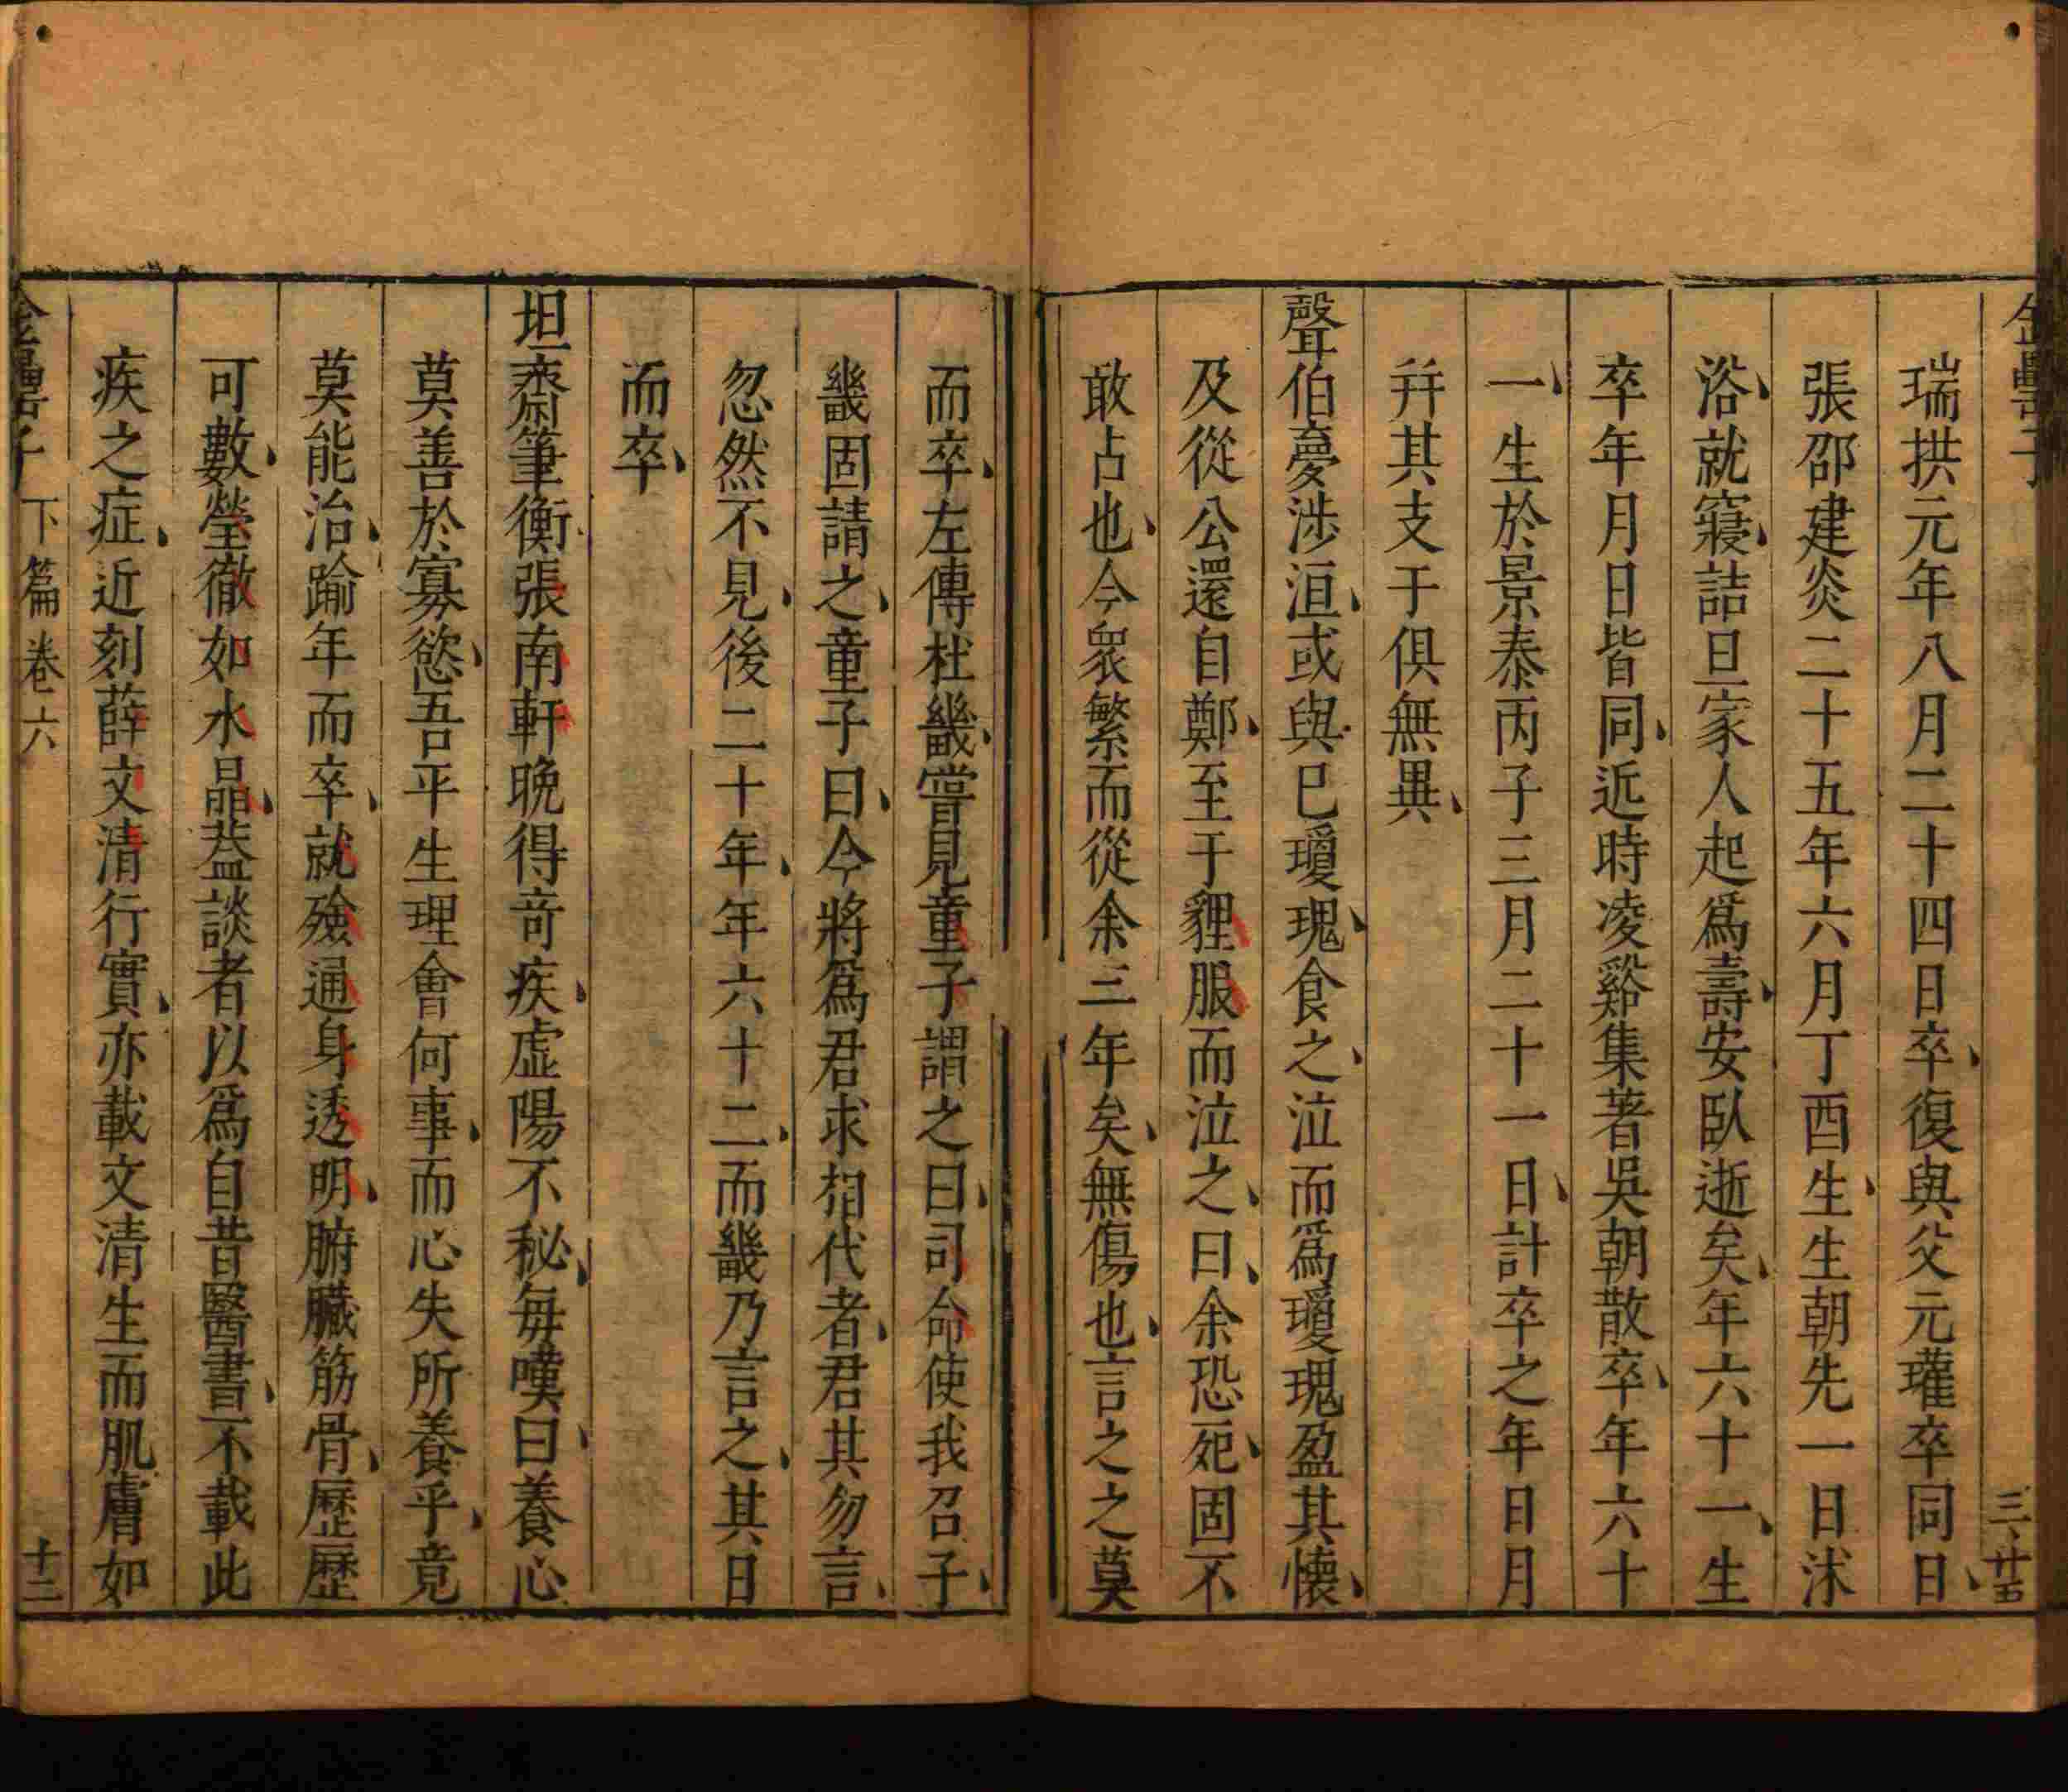 金罍子
三、廿五
瑞拱元年八月二十四日卒復與父元瓘卒同日
張邵建炎二十五年六月丁酉生生朝先一日沐
浴就寢詰旦家人起爲壽安臥逝矣年六十一生
卒年月日皆同近時凌谿集著吳朝散卒年六十
一生於景泰丙子三月二十一日計卒之年日月
幷其支干俱無異
聲伯夢涉洹或與巳瓊瑰食之泣而爲瓊瑰盈其懷
及從公還自鄭至于貍脤而泣之曰余恐死固不
敢占也今衆繁而從余三年矣無傷也言之之莫
而卒左傳杜畿嘗見童子謂之曰司命使我召子
畿固請之童子曰今將爲君求相代者君其勿言
忽然不見後二十年年六十二而畿乃言之其日
而卒
坦齋筆衡張南軒晚得竒疾虛陽不秘每嘆曰養心
莫善於寡慾吾平生理會何事而心失所養乎竟
莫能治踰年而卒就殮通身透明腑臟筋骨歷歷
可數瑩徹如水晶葢談者以爲自昔醫書不載此
疾之症近刻薛文清行實亦載文清生而肌膚如
金罍子 下篇卷六
十二